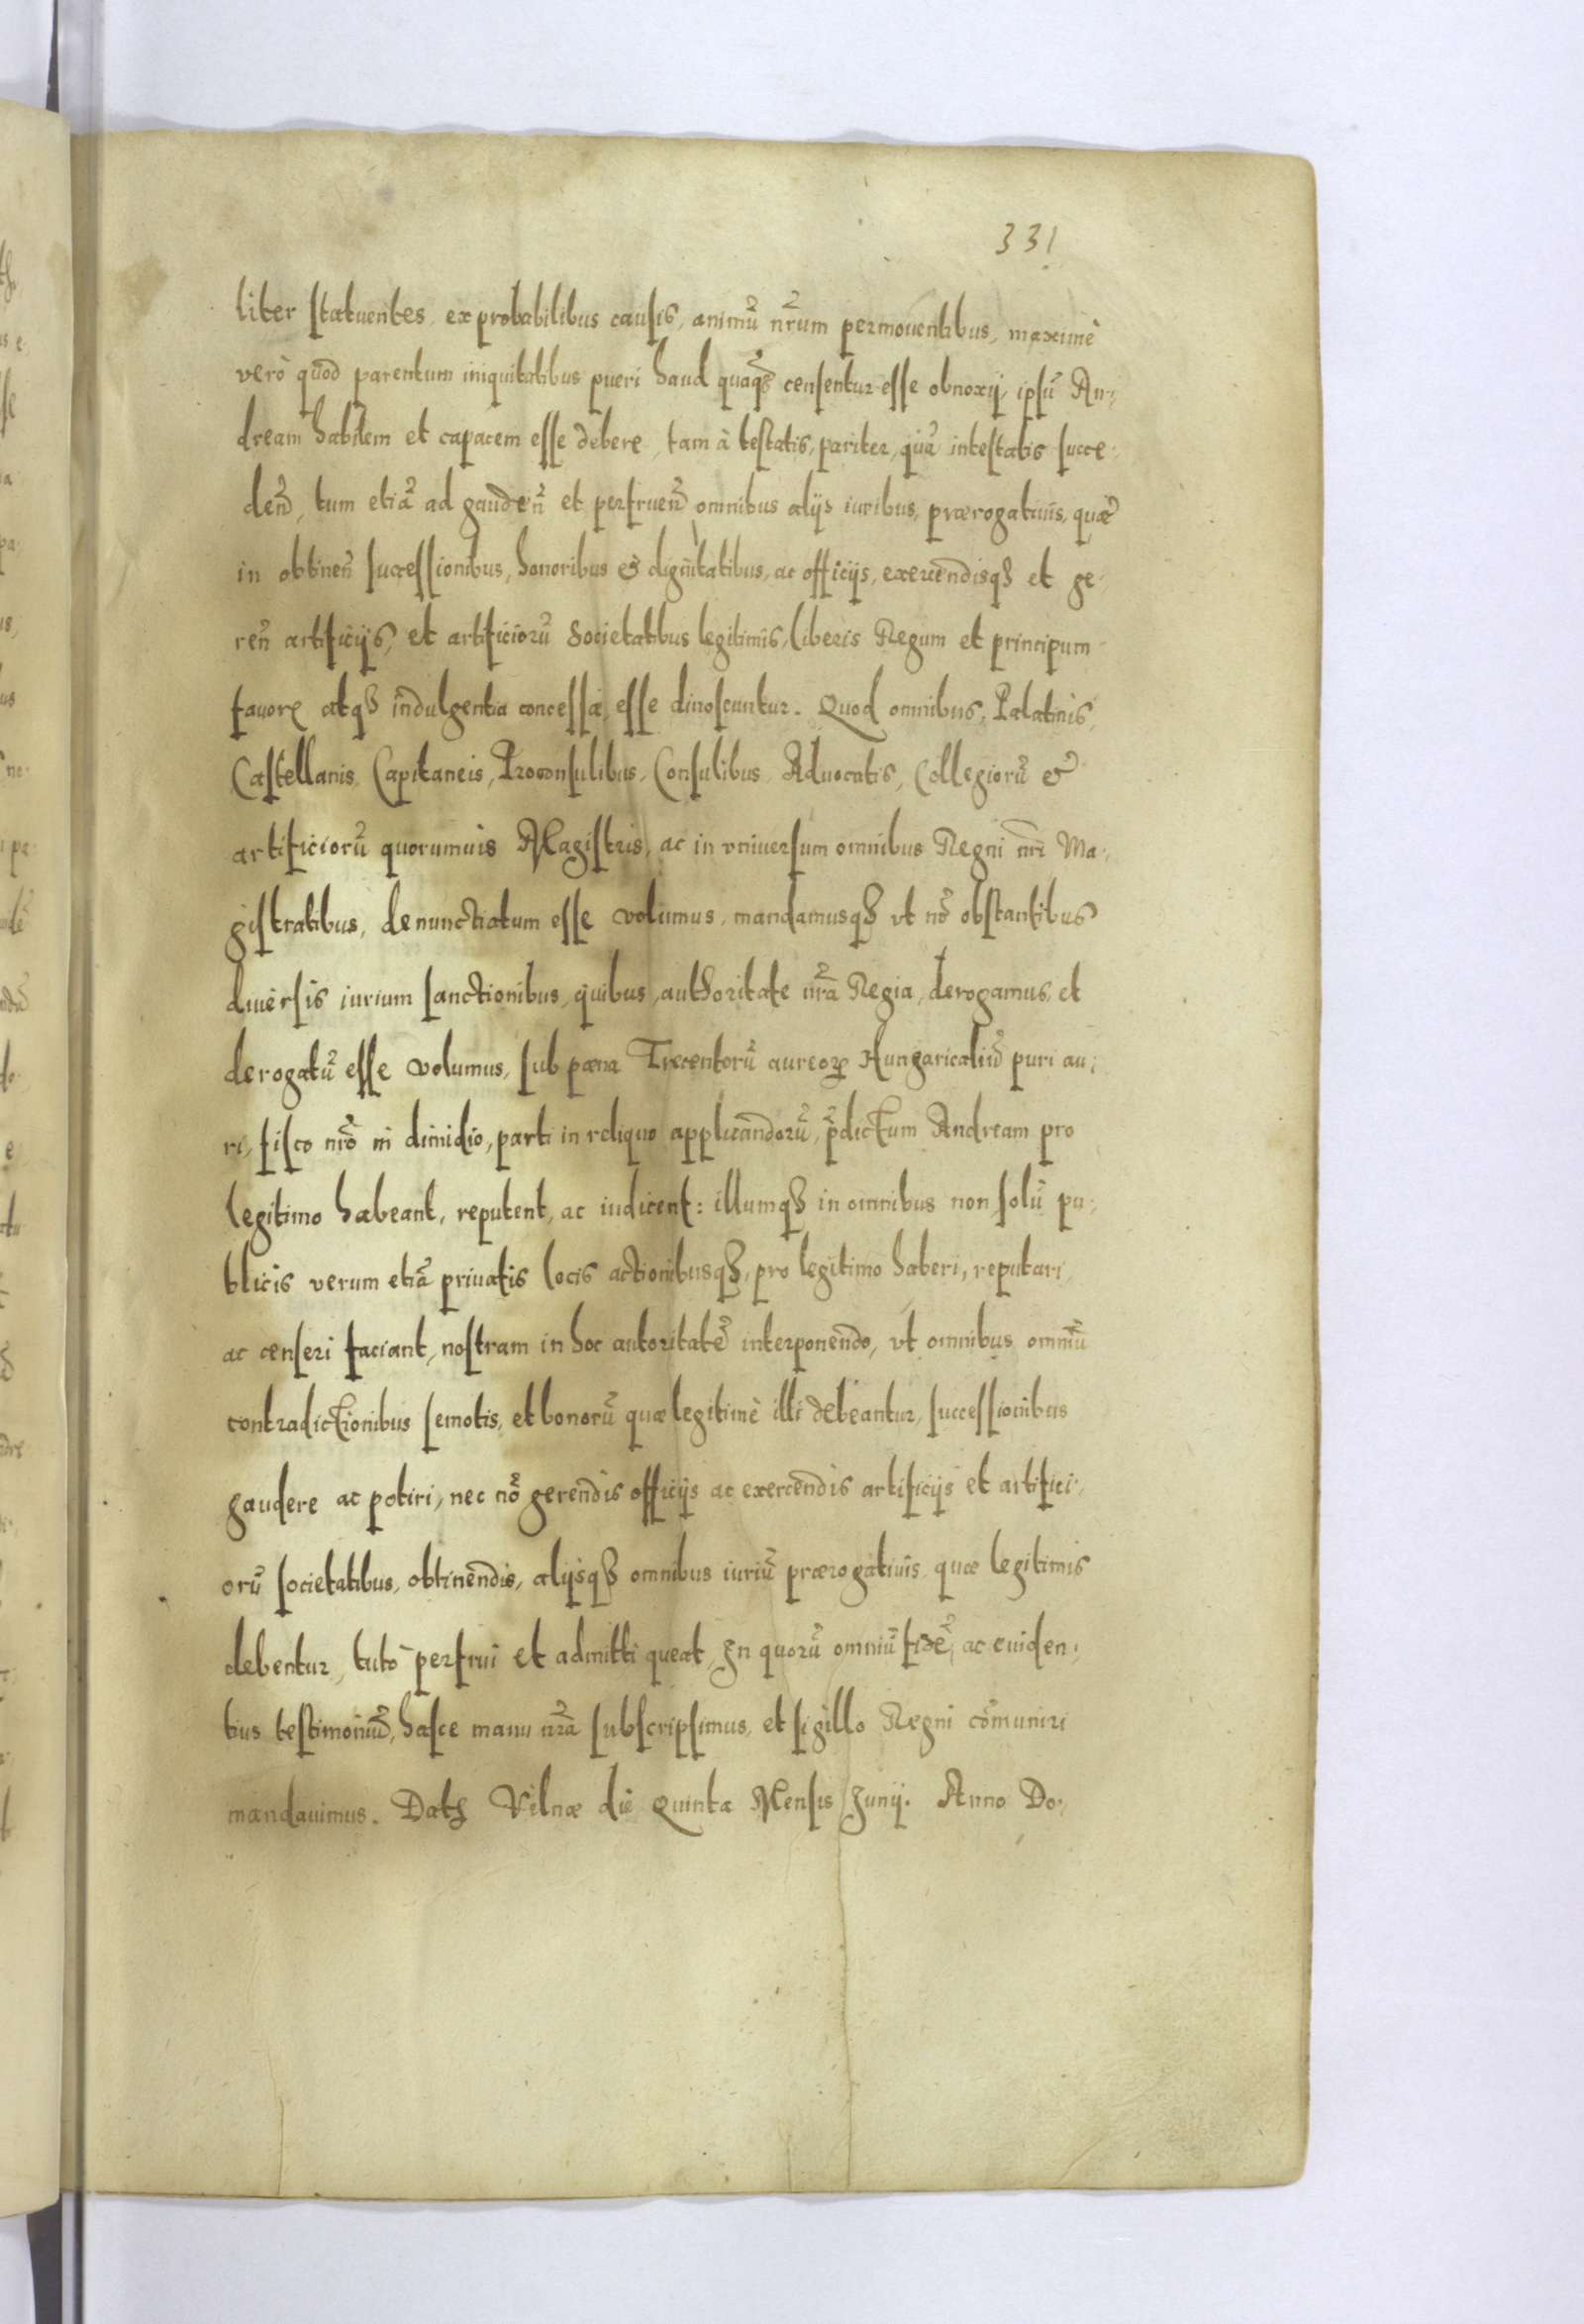 331
liter statuentes, ex probabilibus causis, animũ nr̃um permouentibus, maximè
verò quod parentum iniquitatibus pueri haud quaq̃ censentur esse obnoxij, ipsũ An-
dream habilem et capacem esse debere, tam à testatis, pariter, quã intestatis succe-
deñ, tum etiã ad gaudeñ et perfrueñ omnibus alijs iuribus, prærogatiuis, quæ
in obtineñ successionibus, honoribus & dignitatibus, ac officijs, exercendisqȝ et ge-
reñ artificijs, et artificiorũ Societatibus legitimis, liberis Regum et principum
fauore atqȝ indulgentia concessæ, esse dinoscuntur. Quod omnibus, Palatinis,
Castellanis, Capitaneis, Proconsulibus, Consulibus, Aduocatis, Collegiorũ &
artificiorũ quorumuis Magistris, ac in vniuersum omnibus Regni nr̃i Ma-
gistratibus, denunctiatum esse volumus, mandamusqȝ vt nõ obstantibus
diuersis iurium sanctionibus, quibus, authoritate nr̃a Regia, derogamus, et
derogatũ esse volumus, sub pæna Trecentorũ aureoꝝ Hungaricaliũ puri au-
ri, fisco nr̃o in dimidio, parti in reliquo applicandorũ, p̃dictum Andream pro
legitimo habeant, reputent, ac iudicent: illumqȝ in omnibus non solũ pu-
blicis verum etiã priuatis locis actionibusqȝ, pro legitimo haberi, reputari,
ac censeri faciant, nostram in hoc autoritatẽ interponendo, vt omnibus omniũ
contradictionibus semotis, et bonorũ quæ legitimè illi debeantur, successionibus
gaudere ac potiri, nec nõ gerendis officijs ac exercendis artificijs et artifici-
orũ societatibus, obtinendis, alijsqȝ omnibus iuriũ prærogatiuis, quæ legitimis
debentur, tutò perfrui et admitti queat, In quorũ omniũ fidẽ, ac euiden-
tius testimoniũ, hasce manu nr̃a subscripsimus, et sigillo Regni cõmuniri
mandauimus. Datȝ Vilnæ die Quinta Mensis Junij. Anno Do-